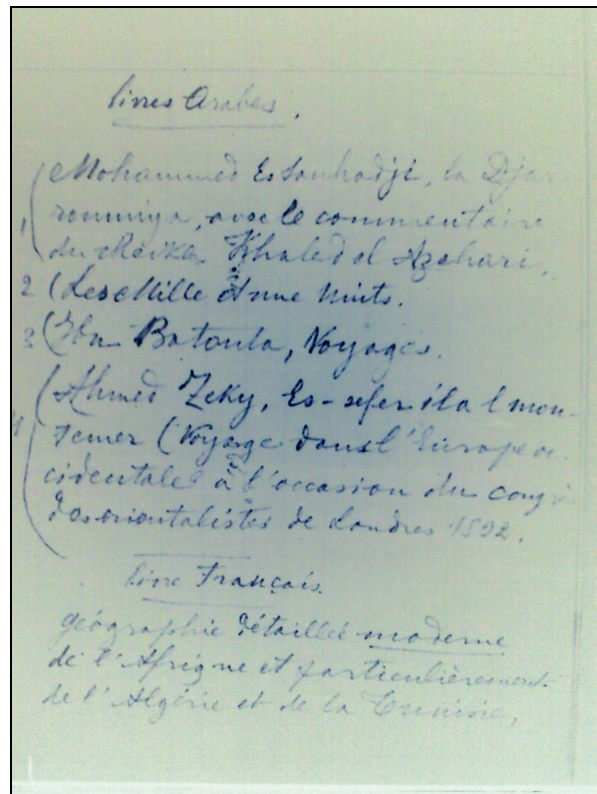 livres Arabes.
1 (Mohammed Es Sanhadji, la Djar
roumiya, avec le commentaire
du cheikh Khaled el Azehari.
2 (Les Mille et une Nuits.
3 (Ibn Batouta, Voyages.
4 (Ahmed Zeky, Es-sefer ila l mou-
temer (Voyage dans l'Europe oc
cidentale à l'occasion du congrès
des orientalistes de Londres 1892.
livre Français.
géographie détaillée moderne
de l'Afrique et particulièrement
de l'Algérie et de la Tunisie,